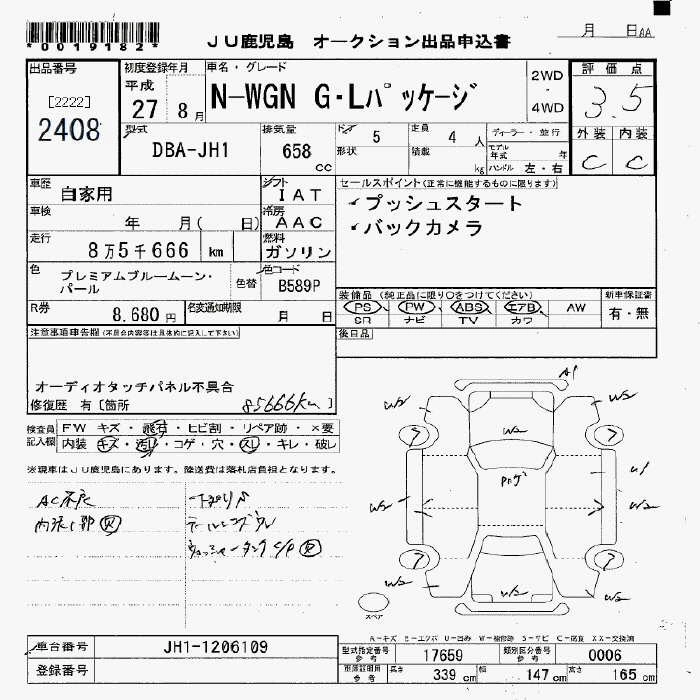 *0019182*
JU鹿児島 オークション出品申込書
月 日
出品番号
[2222]
2408
初度登録年月
平成
27 8月
車名・グレード
N-WGN G・Lパッケージ
2WD
・
4WD
評価点
3.5
外装 内装
C C
型式
DBA-JH1
排気量
658 cc
ドア 5
形状
定員 4 人
積載 kg
ディーラー・並行
モデル年式 年
ハンドル 左・右
車歴
自家用
シフト
IAT
車検
年 月( 日)
冷房
AAC
走行
8万5千666 km
燃料
ガソリン
色
プレミアムブルームーン・パール
色替
色コード
B589P
R券
8,680円
名変通知期限
月 日
セールスポイント(正常に機能するものに限ります)
✓プッシュスタート
✓バックカメラ
装備品 (純正品に限り○をつけてください)
PS PW ABS エアB AW
SR ナビ TV カワ
新車保証書
有・無
後日品
注意事項申告欄(不具合内容等は具体的に記入して下さい)
オーディオタッチパネル不具合
修復歴 有[箇所 85666km ]
検査員記入欄
FW キズ・飛石・ヒビ割・リペア跡・×要
内装 キズ・汚れ・コゲ・穴・スレ・キレ・破レ
※現車はJU鹿児島にあります。陸送費は落札店負担となります。
A1
W2 W2 W2
7 7
W2 U1
W2
7 7
W2 W2 W2
スペア
A-キズ E-エクボ U-凹み W-補修跡 S-サビ C-腐食 XX-交換済
車台番号 JH1-1206109
登録番号
型式指定番号 参考 17659
類別区分番号 参考 0006
長さ 339 cm 幅 147 cm 高さ 165 cm